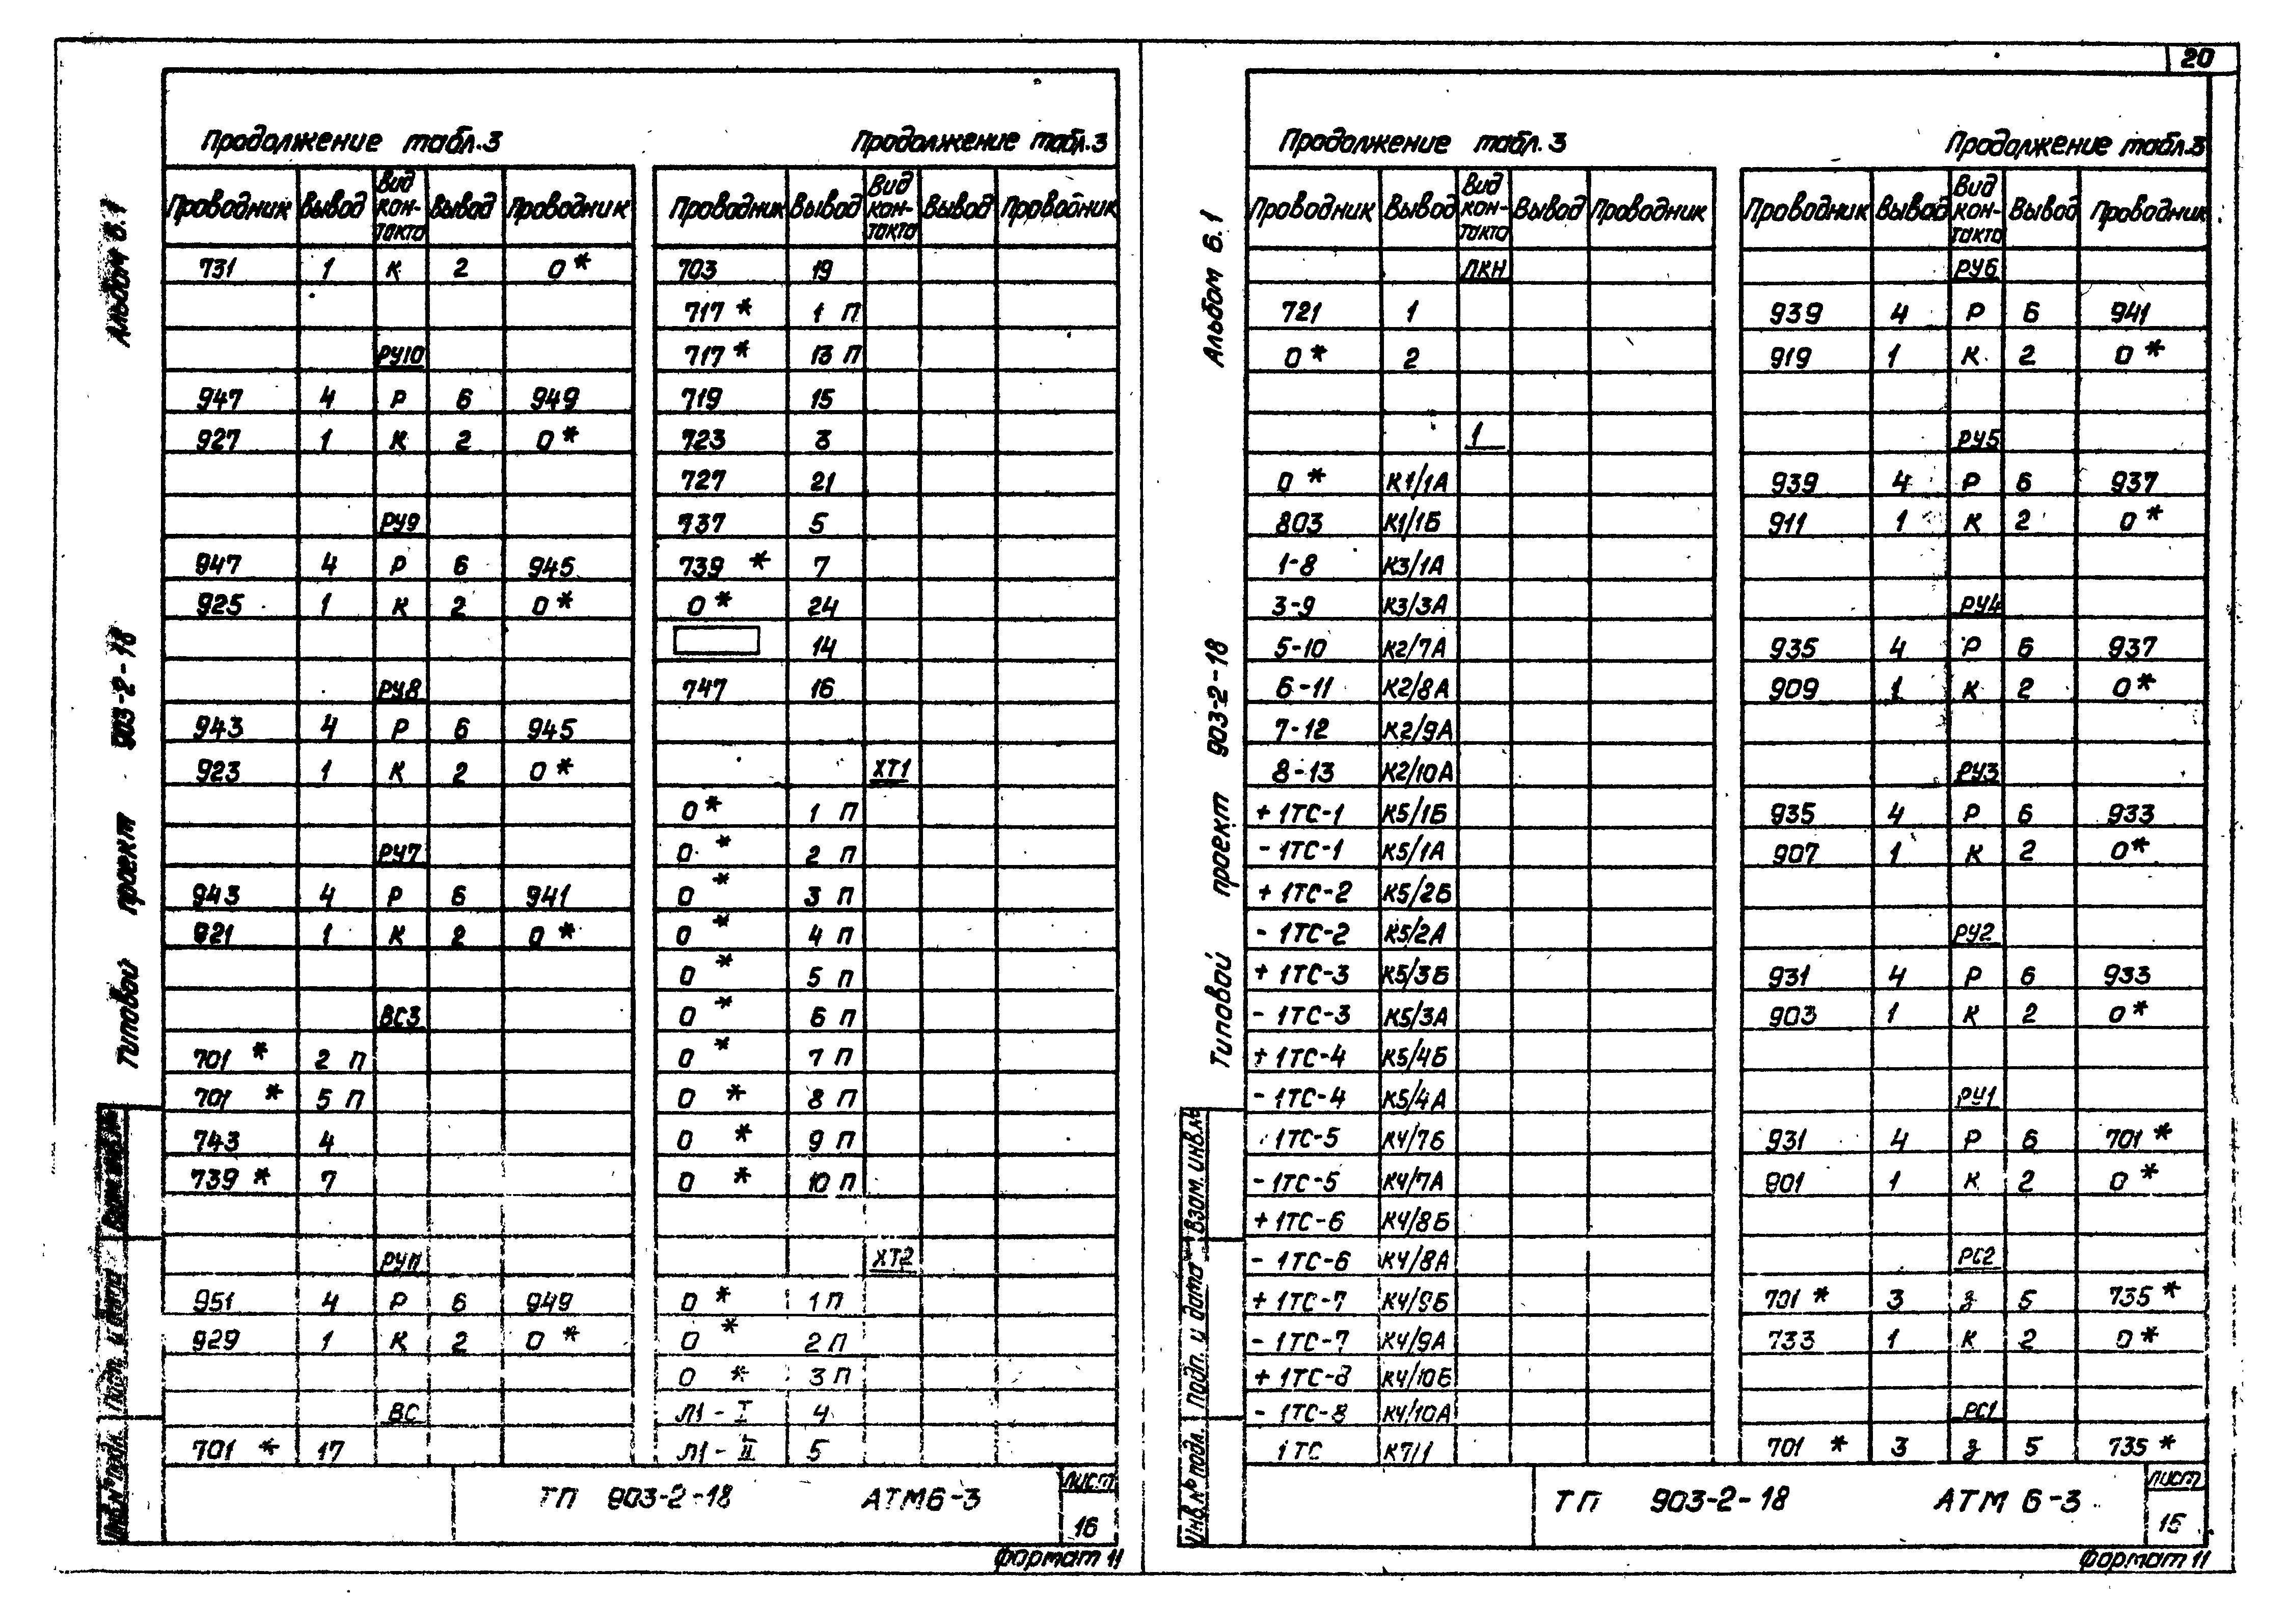 20
Альбом 6.1
Типовой проект 903-2-18
Продолжение табл.3
Проводник Вывод Вид кон-такта Вывод Проводник
731 1 К 2 0*
РУ10
947 4 Р 6 949
927 1 К 2 0*
РУ9
947 4 Р 6 945
925 1 К 2 0*
РУ8
943 4 Р 6 945
923 1 К 2 0*
РУ7
943 4 Р 6 941
921 1 К 2 0*
ВС3
701 * 2 П
701 * 5 П
743 4
739 * 7
РУ11
951 4 Р 6 949
929 1 К 2 0 *
ВС
701 * 17
Продолжение табл.3
Проводник Вывод Вид кон-такта Вывод Проводник
703 19
717 * 1 П
717 * 13 П
719 15
723 3
727 21
737 5
739 * 7
0 * 24
14
747 16
ХТ1
0 * 1 П
0 * 2 П
0 * 3 П
0 * 4 П
0 * 5 П
0 * 6 П
0 * 7 П
0 * 8 П
0 * 9 П
0 * 10 П
ХТ2
0 * 1 П
0 * 2 П
0 * 3 П
Л1 - I 4
Л1 - II 5
Инв.№ подл. Подп. и дата
ТП 903-2-18 АТМ6-3
Лист
16
Формат 11
Альбом 6.1
Типовой проект 903-2-18
Продолжение табл.3
Проводник Вывод Вид кон-такта Вывод Проводник
ПКН
721 1
0 * 2
1
0 * К1/1А
803 К1/1Б
1-8 К3/1А
3-9 К3/3А
5-10 К2/7А
6-11 К2/8А
7-12 К2/9А
8-13 К2/10А
+ 1ТС-1 К5/1Б
- 1ТС-1 К5/1А
+ 1ТС-2 К5/2Б
- 1ТС-2 К5/2А
+ 1ТС-3 К5/3Б
- 1ТС-3 К5/3А
+ 1ТС-4 К5/4Б
- 1ТС-4 К5/4А
1ТС-5 К4/7Б
- 1ТС-5 К4/7А
+ 1ТС-6 К4/8Б
- 1ТС-6 К4/8А
+ 1ТС-7 К4/9Б
- 1ТС-7 К4/9А
+ 1ТС-8 К4/10Б
- 1ТС-8 К4/10А
1ТС К7/1
Продолжение табл.3
Проводник Вывод Вид кон-такта Вывод Проводник
РУ6
939 4 Р 6 941
919 1 К 2 0 *
РУ5
939 4 Р 6 937
911 1 К 2 0 *
РУ4
935 4 Р 6 937
909 1 К 2 0*
РУ3
935 4 Р 6 933
907 1 К 2 0*
РУ2
931 4 Р 6 933
903 1 К 2 0*
РУ1
931 4 Р 6 701 *
901 1 К 2 0 *
РС2
701 * 3 З 5 735 *
733 1 К 2 0 *
РС1
701 * 3 З 5 735 *
Инв.№ подл. Подп. и дата Взам. инв.№
ТП 903-2-18 АТМ 6-3
Лист
15
Формат 11